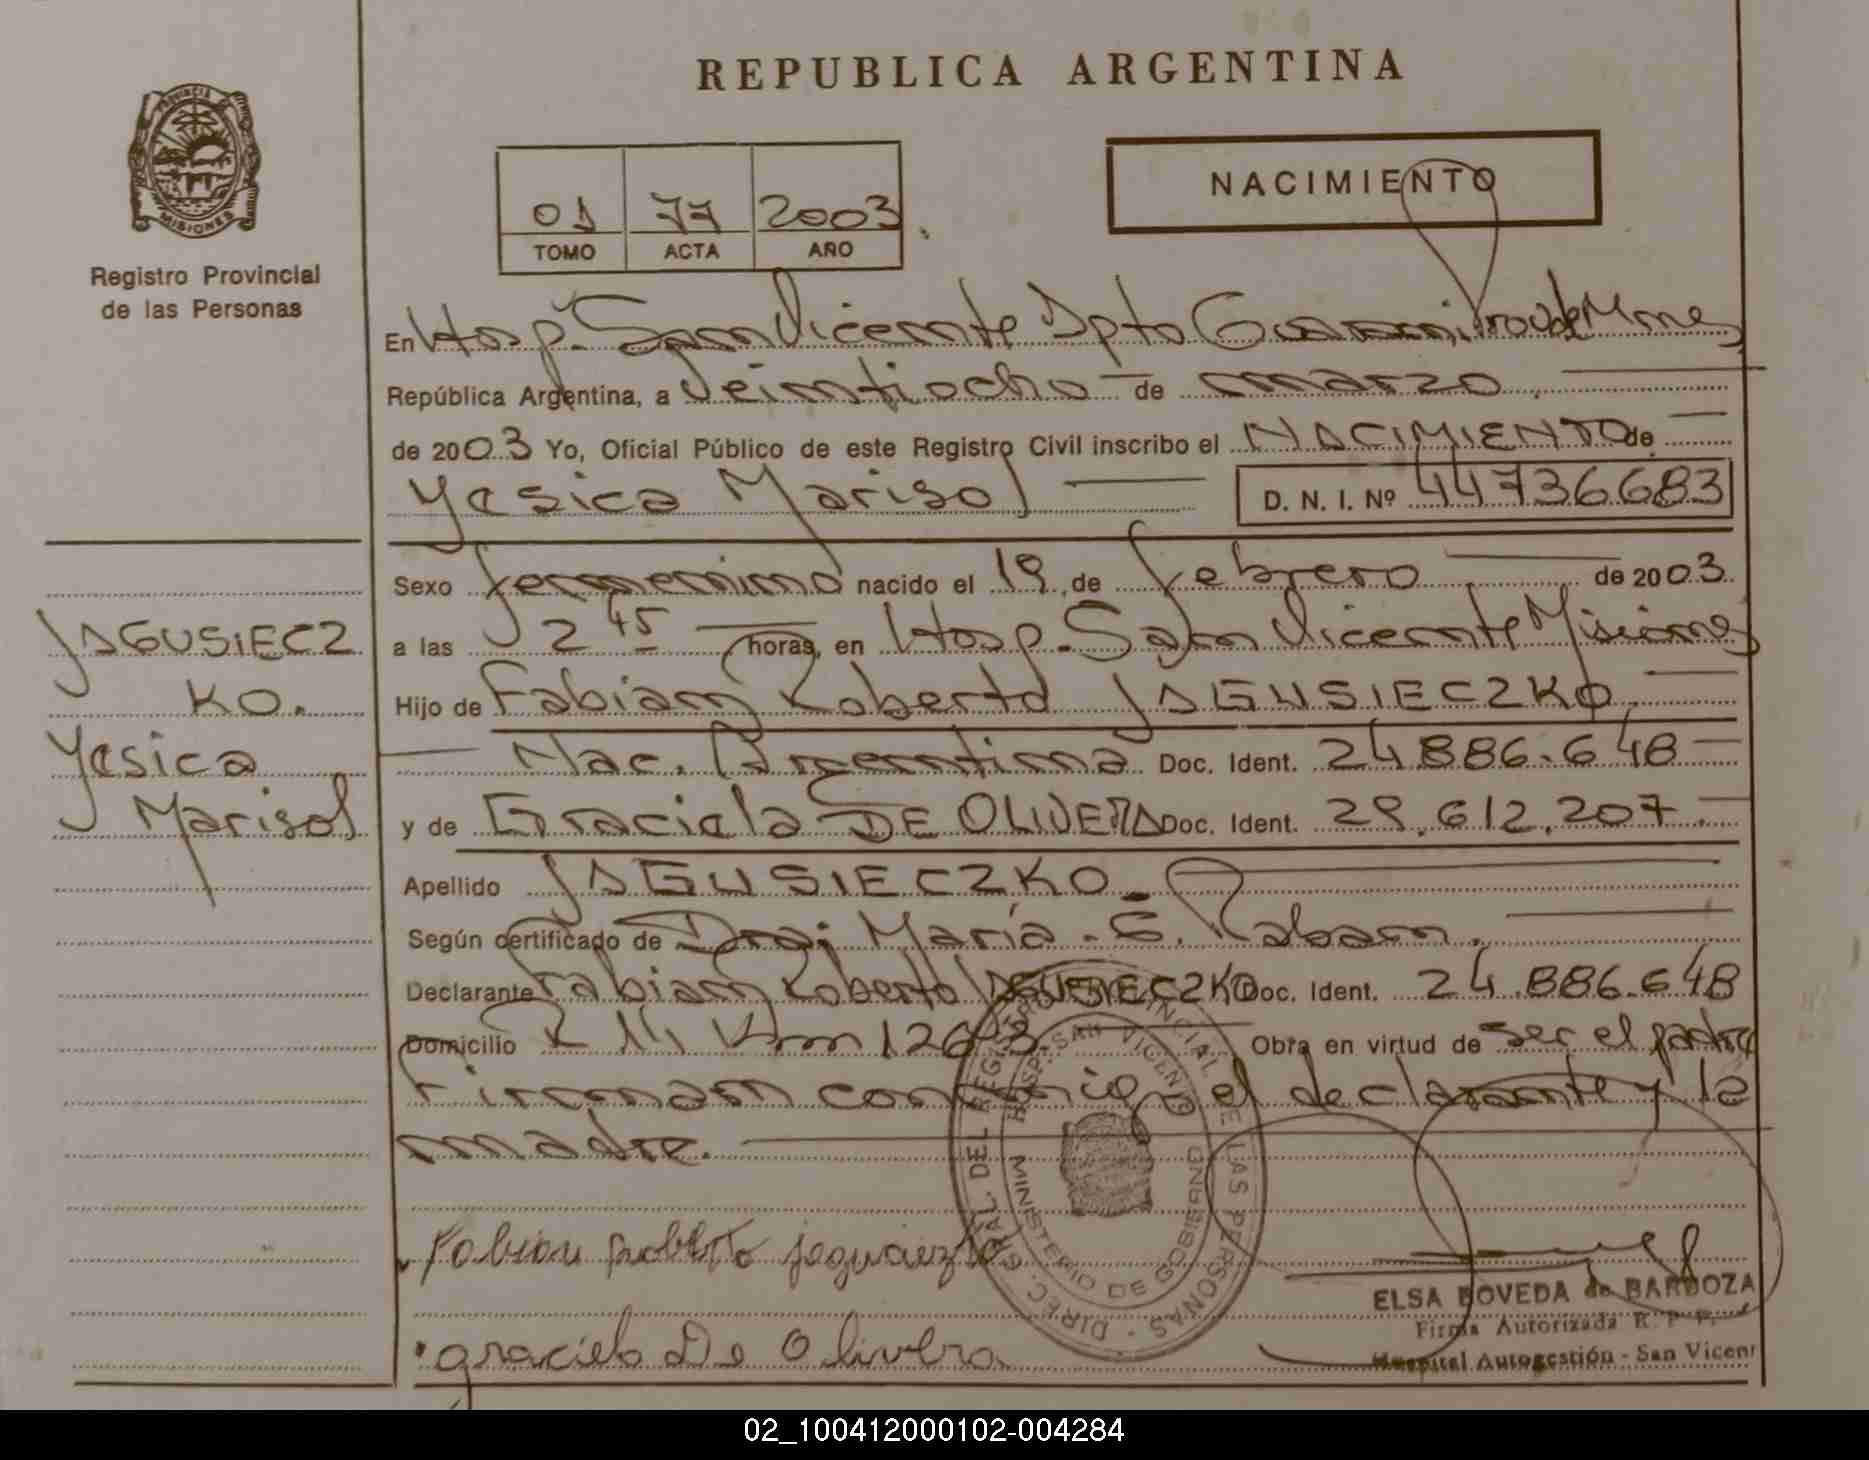 REPUBLICA ARGENTINA
PROVINCIA DE
MISIONES
Registro Provincial
de las Personas
01 77 2003
TOMO ACTA AÑO
NACIMIENTO
En Hosp. San Vicente Dpto Guarani Prov de Mnes
República Argentina, a Veintiocho de marzo
de 2003 Yo, Oficial Público de este Registro Civil inscribo el NACIMIENTO de
Yesica Marisol D. N. I. Nº 44736683
Sexo femenino nacido el 19 de febrero de 2003
a las 2 45 horas, en Hosp. San Vicente Misiones
Hijo de Fabian Roberto JAGUSIECZKO
Nac. Argentina Doc. Ident. 24.886.648
y de Graciela DE OLIVERA Doc. Ident. 29.612.207.
Apellido JAGUSIECZKO.
Según certificado de Dra; María. E. Raban.
Declarante Fabian Roberto JAGUSIECZKO Doc. Ident. 24.886.648
Domicilio R 14 Km 1263. Obra en virtud de ser el padre
Firman conmigo el declarante y la
madre.
JAGUSIECZ
KO.
Yesica
Marisol
DIREC. GRAL. DEL REGISTRO PROVINCIAL DE LAS PERSONAS
HOSP. SAN VICENTE
MINISTERIO DE GOBIERNO
Fabian Roberto
Graciela De Olivera
ELSA BOVEDA de BARBOZA
Firma Autorizada R. P. P.
Hospital Autogestión - San Vicent
02_100412000102-004284